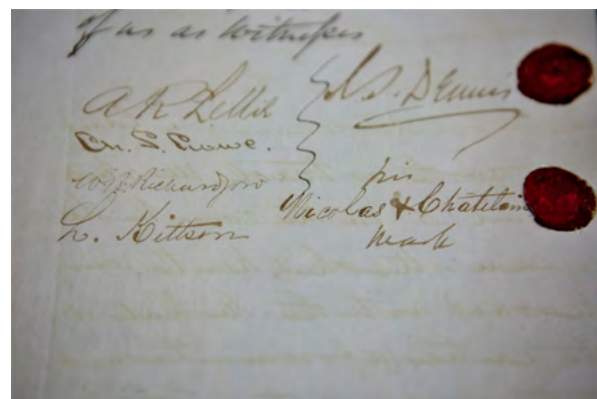 of us as witnesses
A R Lillie
Ch. S. Crowe.
Richardson
L. Kittson
J. S. Dennis
his
Nicolas X Chatelaine
mark